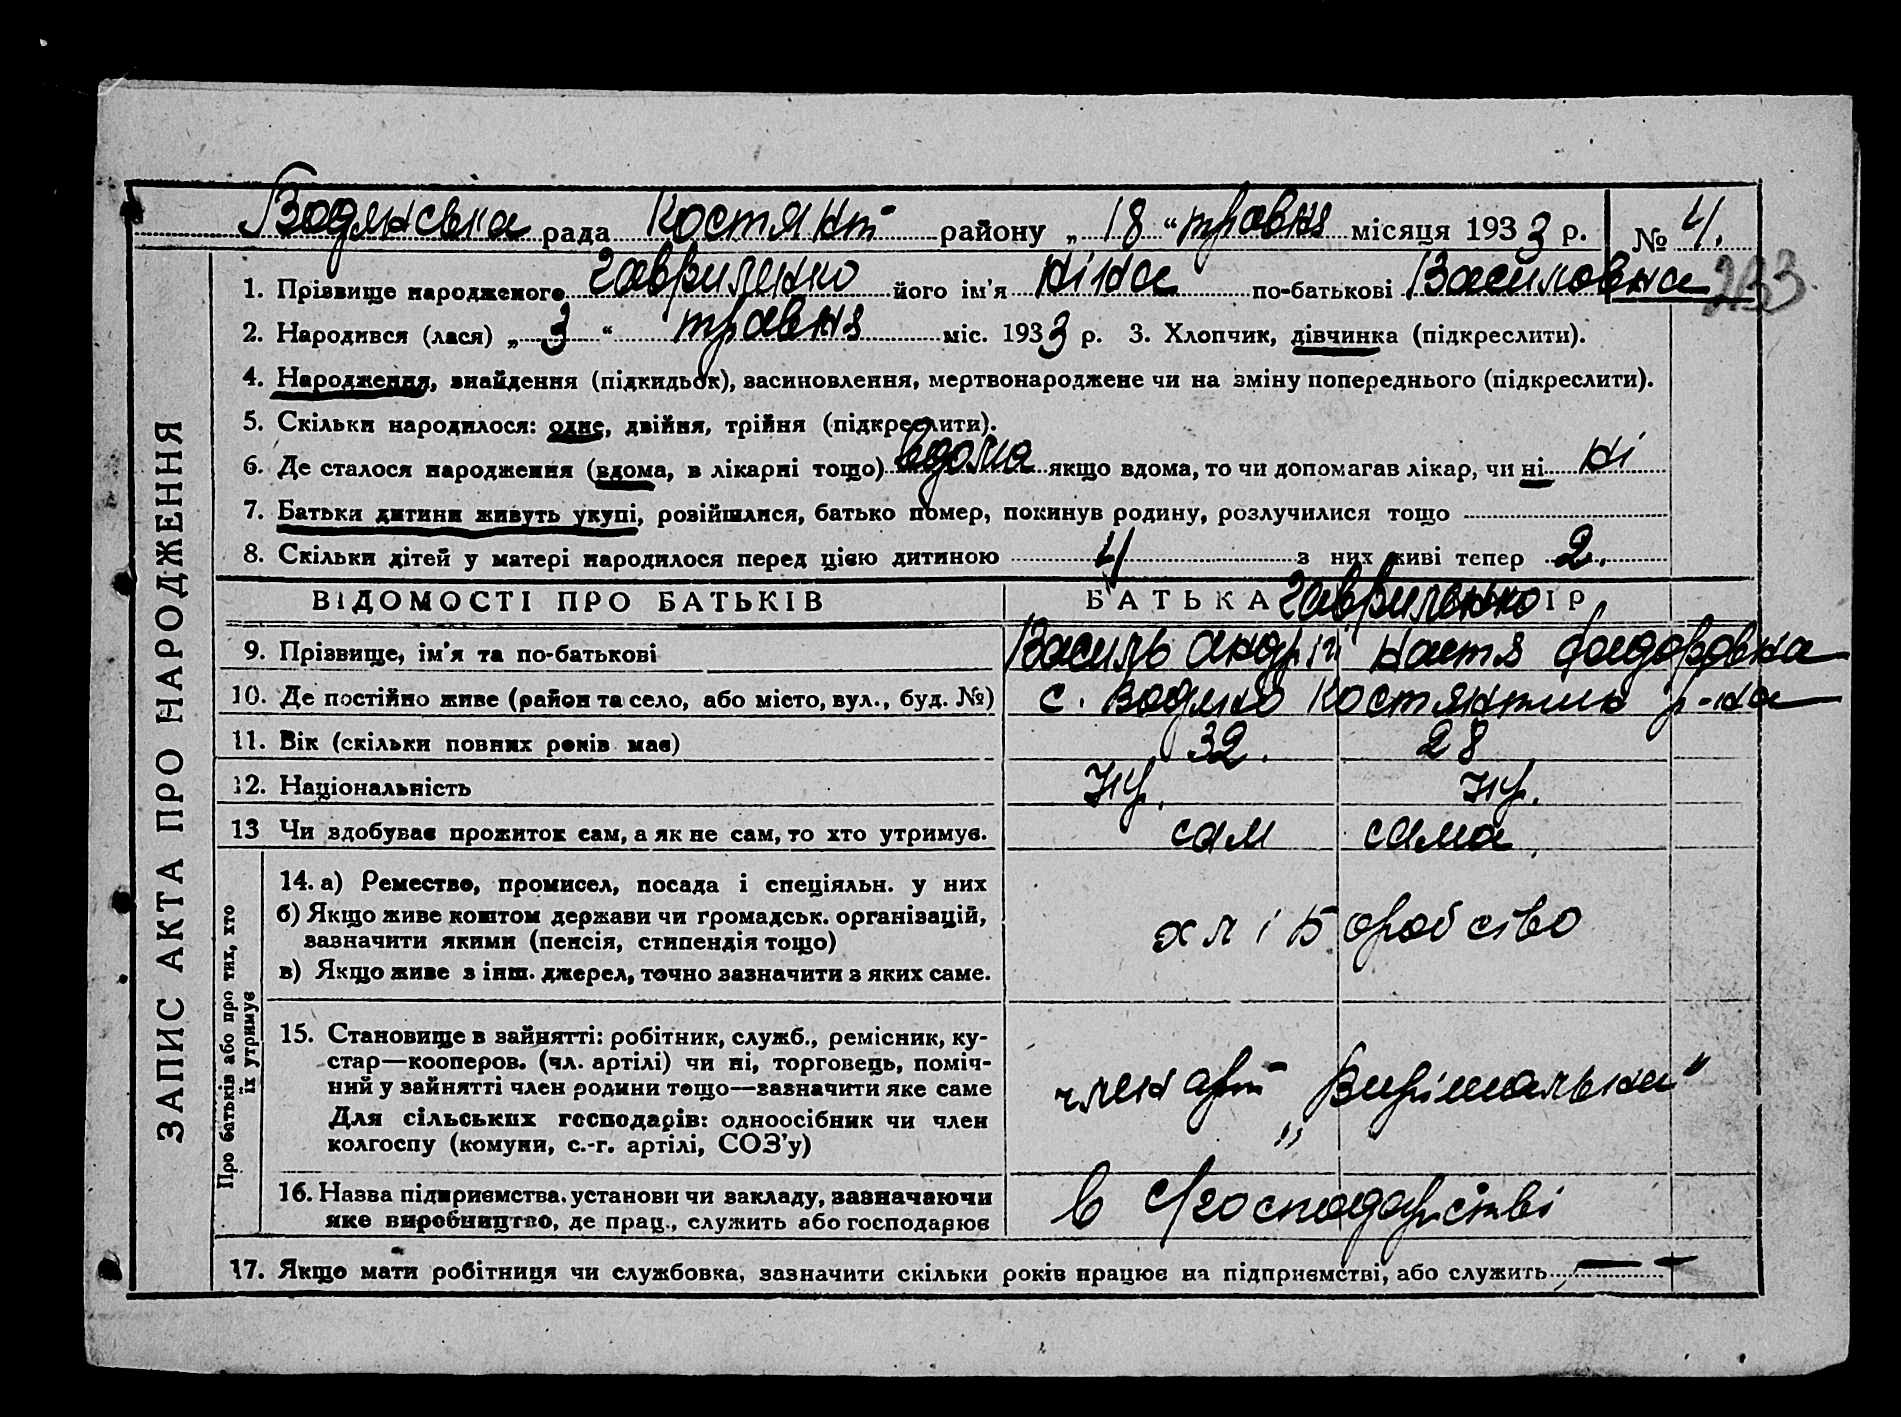 Водянська рада Костянт району „ 18 “ травня місяця 1933 р. № 4.
1. Прізвище народженого Гавриленко його ім'я Ніна по-батькові Василовна 233
2. Народився (лася) „ 3 “ травня міс. 1933 р. 3. Хлопчик, дівчинка (підкреслити).
4. Народження, знайдення (підкидьок), засиновлення, мертвонароджене чи на зміну попереднього (підкреслити).
5. Скільки народилося: одне, двійня, трійня (підкреслити).
6. Де сталося народження (вдома, в лікарні тощо) вдома якщо вдома, то чи допомагав лікар, чи ні ні
7. Батьки дитини живуть укупі, розвійшлися, батько помер, покинув родину, розлучилися тощо
8. Скільки дітей у матері народилося перед цією дитиною 4 з них живі тепер 2.
ВІДОМОСТІ ПРО БАТЬКІВ БАТЬКА Гавриленко
9. Прізвище, ім'я та по-батькові Василь Андрій Настя Федоровна
10. Де постійно живе (район та село, або місто, вул., буд. №) с. Водяно Костянтин р-на
11. Вік (скільки повних років має) 32. 28
12. Національність Укр. Укр.
13 Чи здобуває прожиток сам, а як не сам, то хто утримує. сам сама
ЗАПИС АКТА ПРО НАРОДЖЕННЯ
Про батьків або про тих, хто їх утримує
14. а) Ремество, промисел, посада і спеціяльн. у них
б) Якщо живе коштом держави чи громадськ. організацій,
зазначити якими (пенсія, стипендія тощо)
хліборобство
в) Якщо живе з інш. джерел, точно зазначити з яких саме.
15. Становище в зайнятті: робітник, служб., ремісник, ку-
стар—кооперов. (чл. артілі) чи ні, торговець, поміч-
ний у зайнятті член родини тощо—зазначити яке саме
член арт „Вирішальна“
Для сільських господарів: одноосібник чи член
колгоспу (комуни, с.-г. артілі, СОЗ'у)
16. Назва підприємства, установи чи закладу, зазначаючи
яке виробництво, де прац., служить або господарює
в с/господарстві
17. Якщо мати робітниця чи службовка, зазначити скільки років працює на підприємстві, або служить —